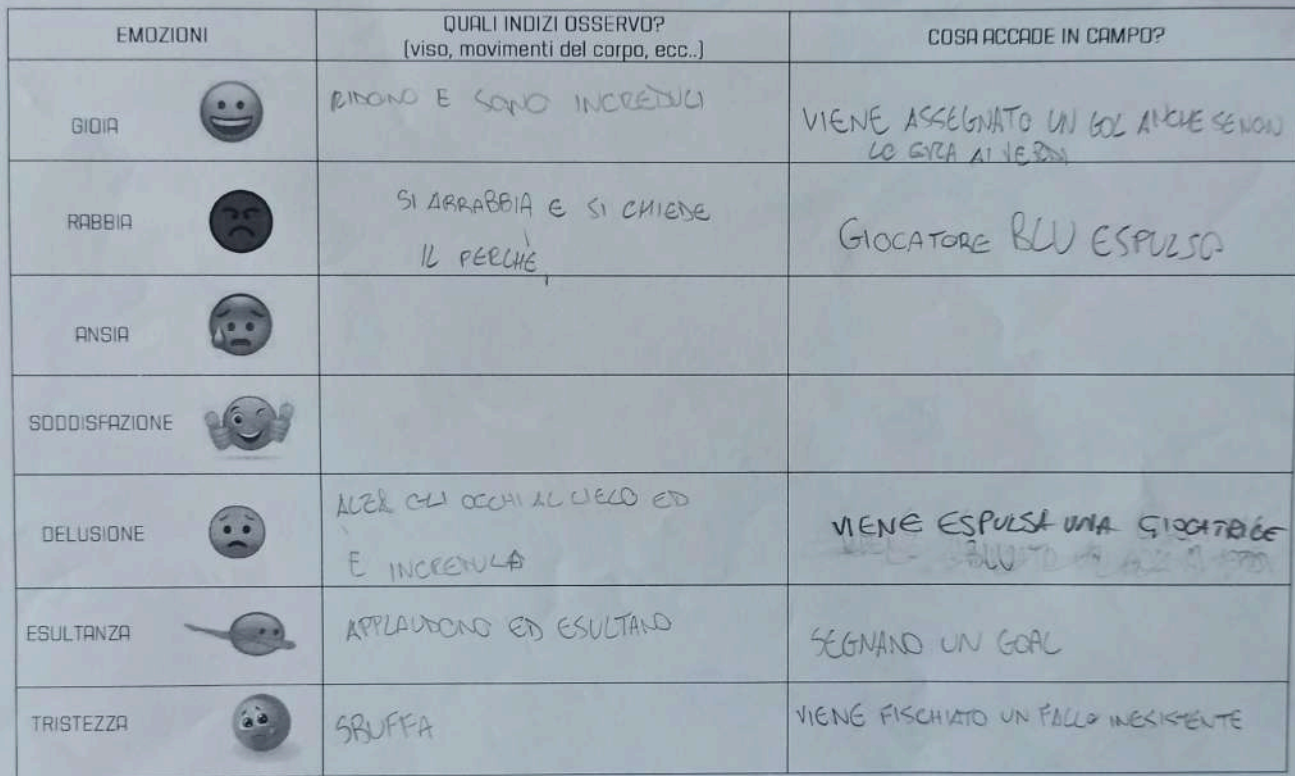 EMOZIONI
QUALI INDIZI OSSERVO?
(viso, movimenti del corpo, ecc..)
COSA ACCADE IN CAMPO?
GIOIA
RIDONO E SONO INCREDULI
VIENE ASSEGNATO UN GOL ANCHE SE NON
LO ERA AI VERDI
RABBIA
SI ARRABBIA E SI CHIEDE
IL PERCHÉ
GIOCATORE BLU ESPULSO
ANSIA
SODDISFAZIONE
DELUSIONE
ALZA GLI OCCHI AL CIELO ED
È INCREDULA
VIENE ESPULSA UNA GIOCATRICE
BLU
ESULTANZA
APPLAUDONO ED ESULTANO
SEGNANO UN GOAL
TRISTEZZA
SBUFFA
VIENE FISCHIATO UN FALLO INESISTENTE